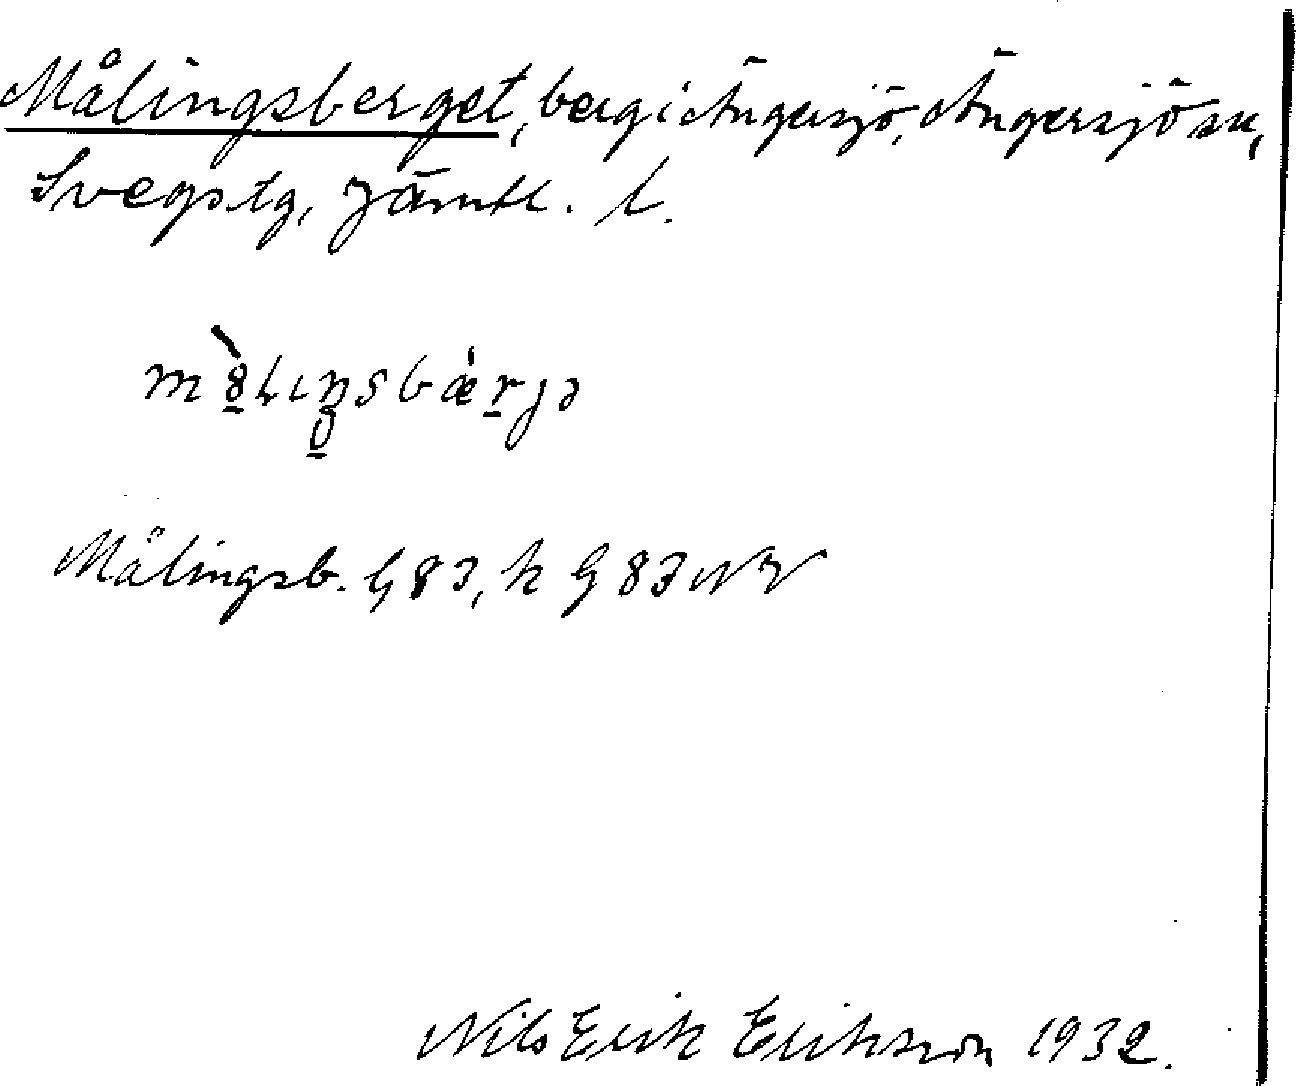 Målingsberget, berg i Ängersjö, Ängersjö sn,
Svegs tg, Jämtl. l.
Målingsb. G 83, k G 83 NV
Nils Erik Erikson 1932.